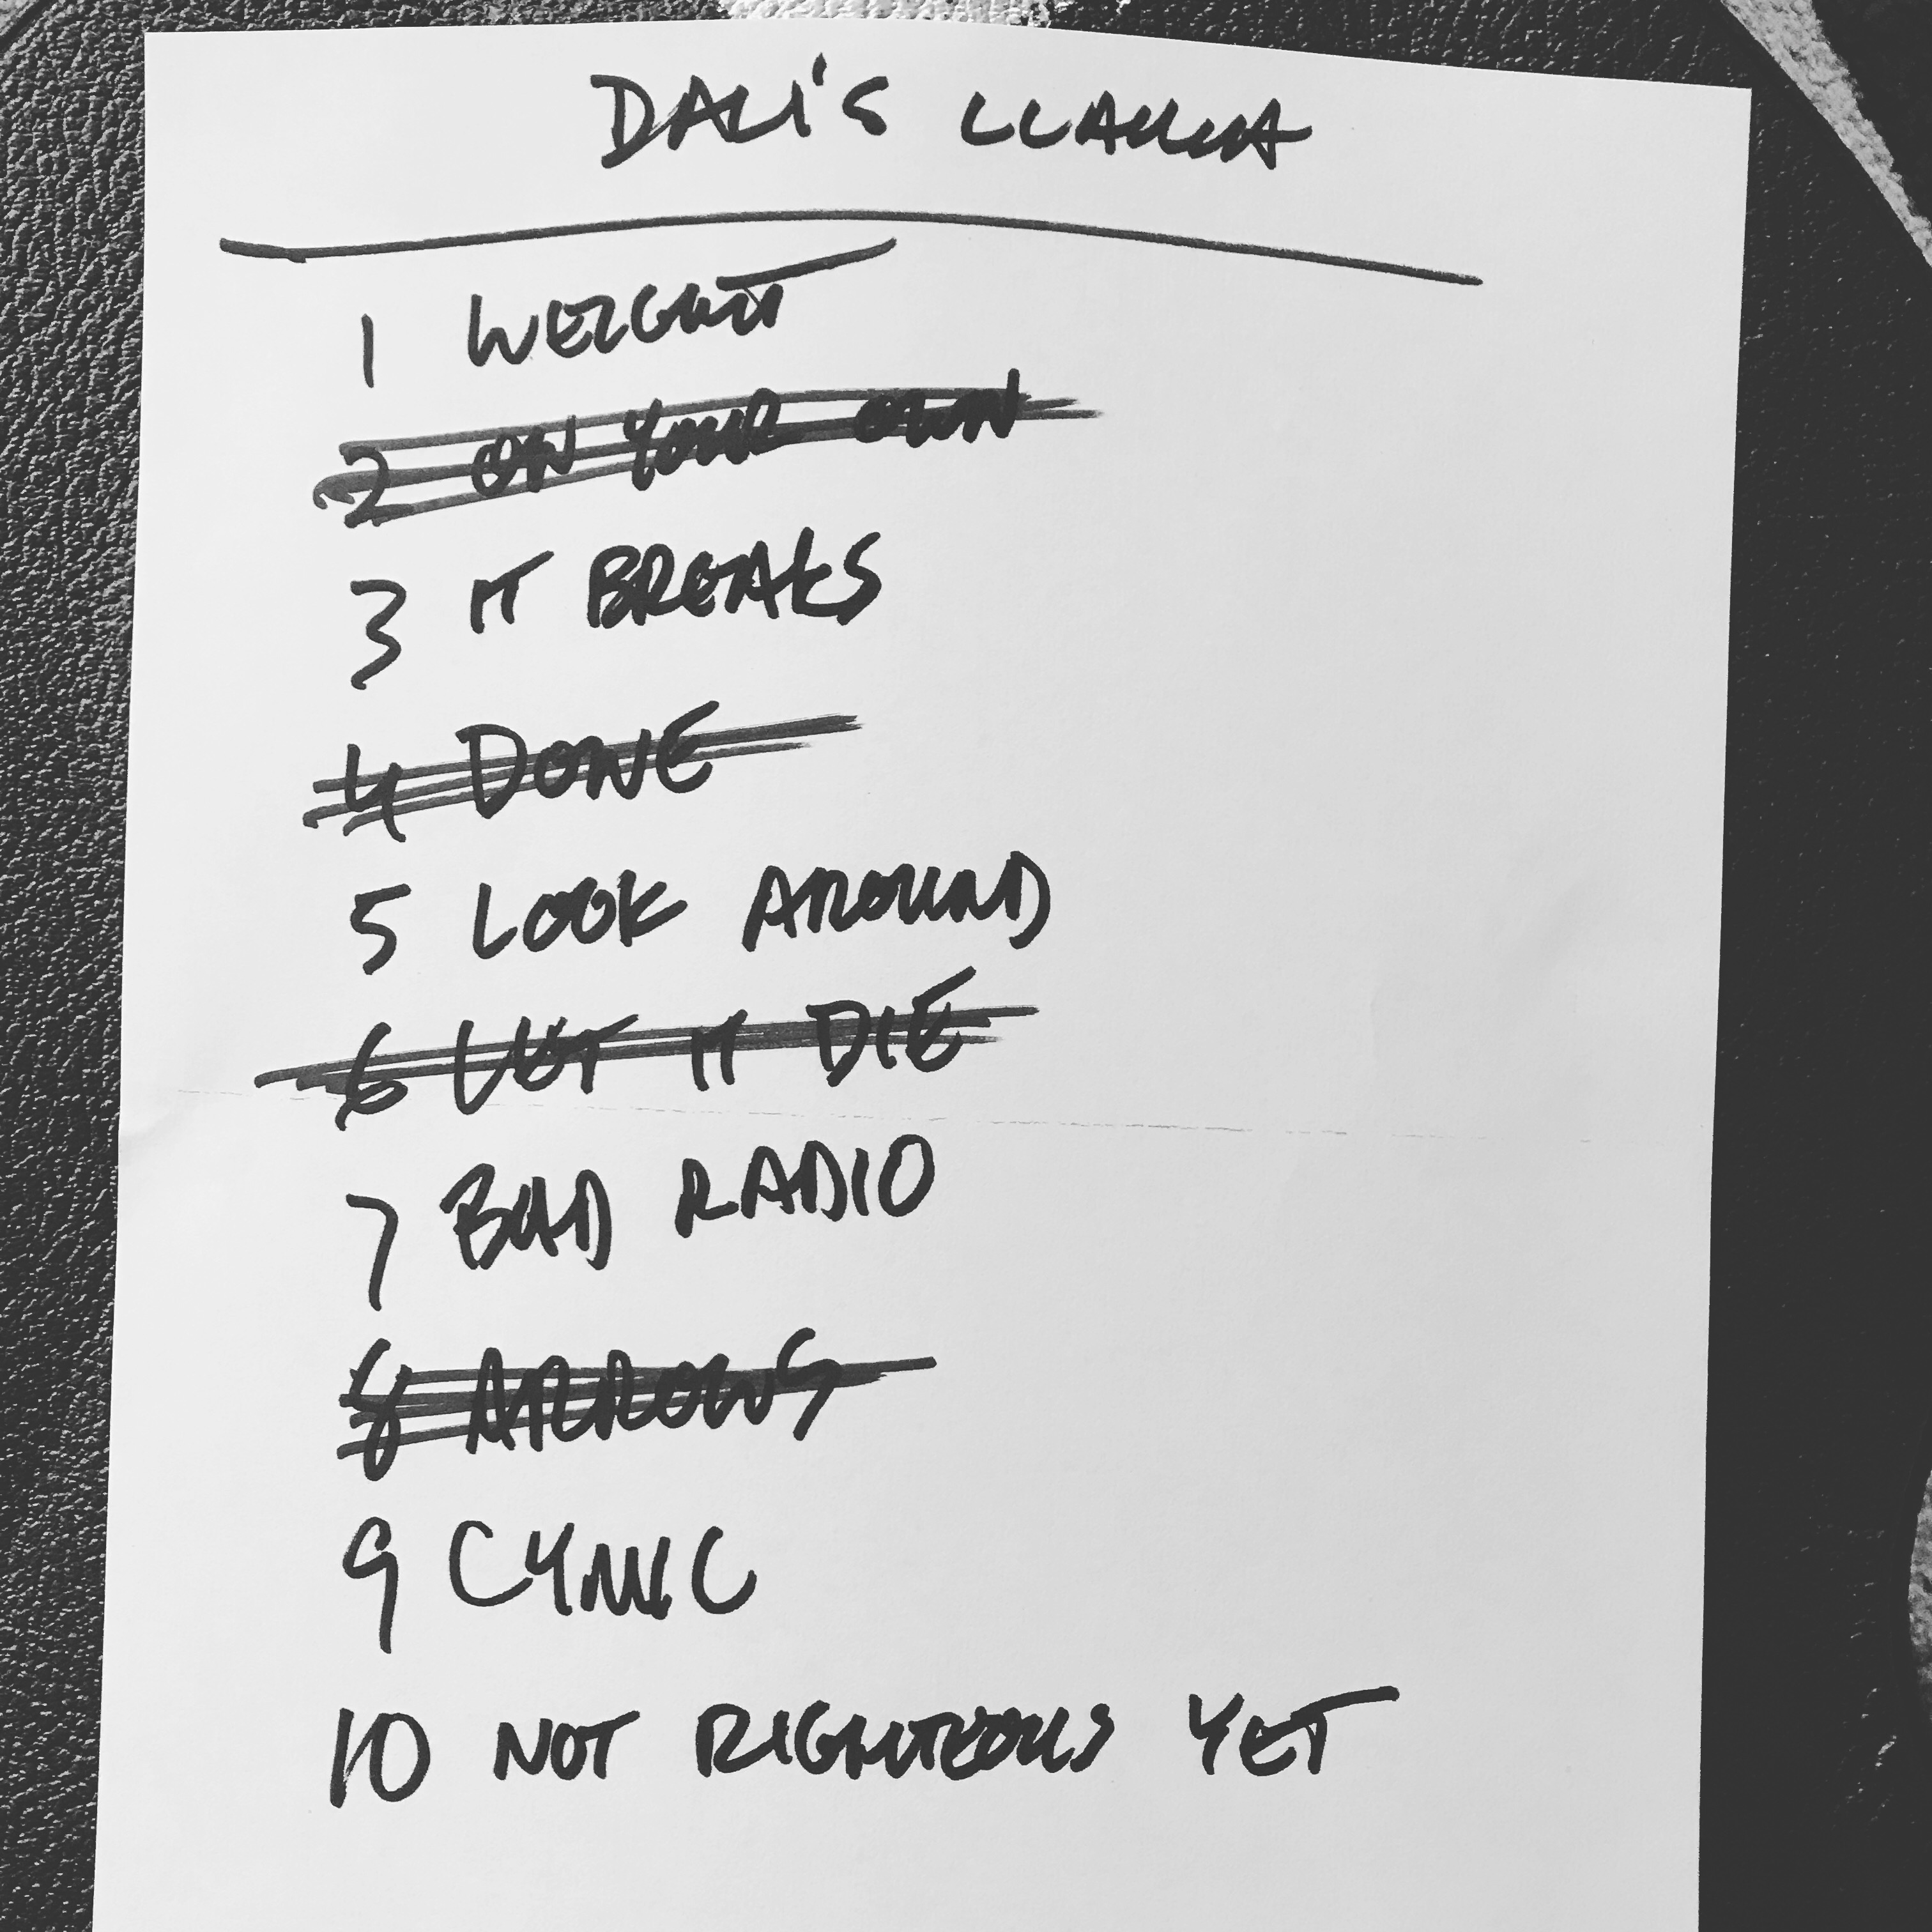 DALI'S LLAMA
1 WEIGHT
2 ON YOUR OWN
3 IT BREAKS
4 DONE
5 LOOK AROUND
6 LET IT DIE
7 BAD RADIO
8 ARROWS
9 CYNIC
10 NOT RIGHTEOUS YET